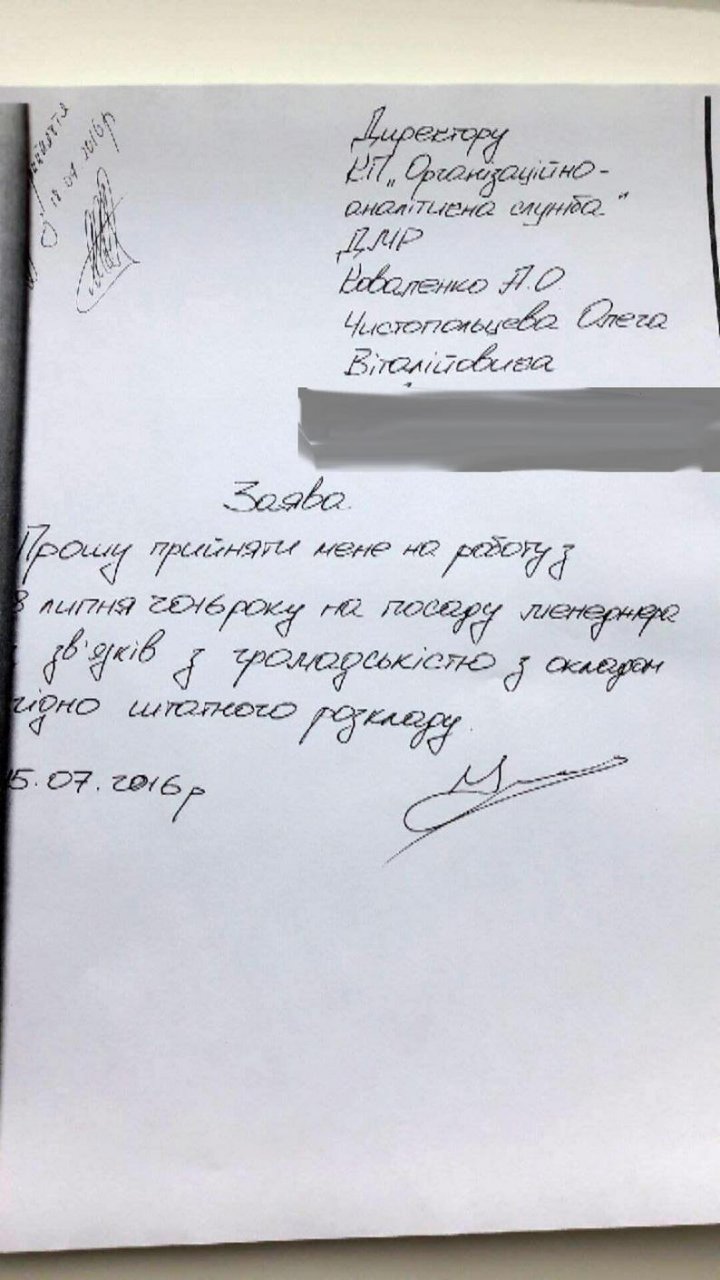 18.07.2016р
Директору
КП „Організаційно-
аналітична служба"
ДМР
Коваленко А.О
Чистопольцева Олега
Віталійовича
Заява.
Прошу прийняти мене на роботу з
8 липня 2016 року на посаду менеджера
зв'язків з громадськістю з окладом
гідно штатного розкладу.
15.07.2016р